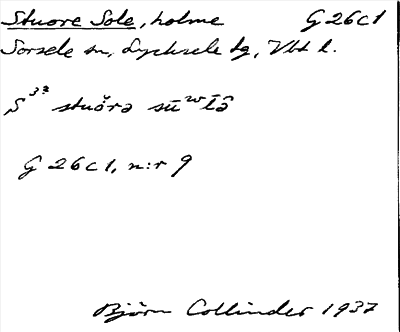 Stuore Sole, holme G 26c1
Sorsele sn, Lycksele tg, Vbt l.
S³² stuōrə sūʷlō̂
G 26c1, n:r 9
Björn Collinder 1937